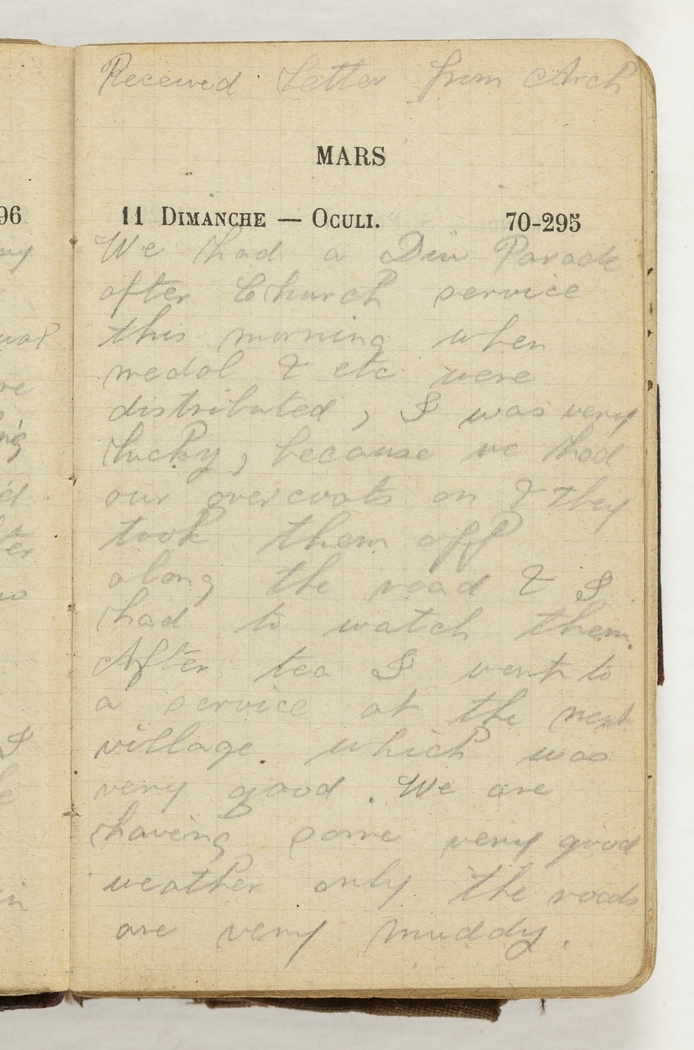 Received letter from Arch
MARS
11 DIMANCHE — OCULI. 70-295
We had a Div Parade
after Church service
this morning when
medal & etc were
distributed, I was very
lucky, because we had
our overcoats on & they
took them off
along the road & I
had to watch them.
After tea I went to
a service at the next
village. which was
very good. We are
having some very good
weather only. the roads
are very muddy.
96